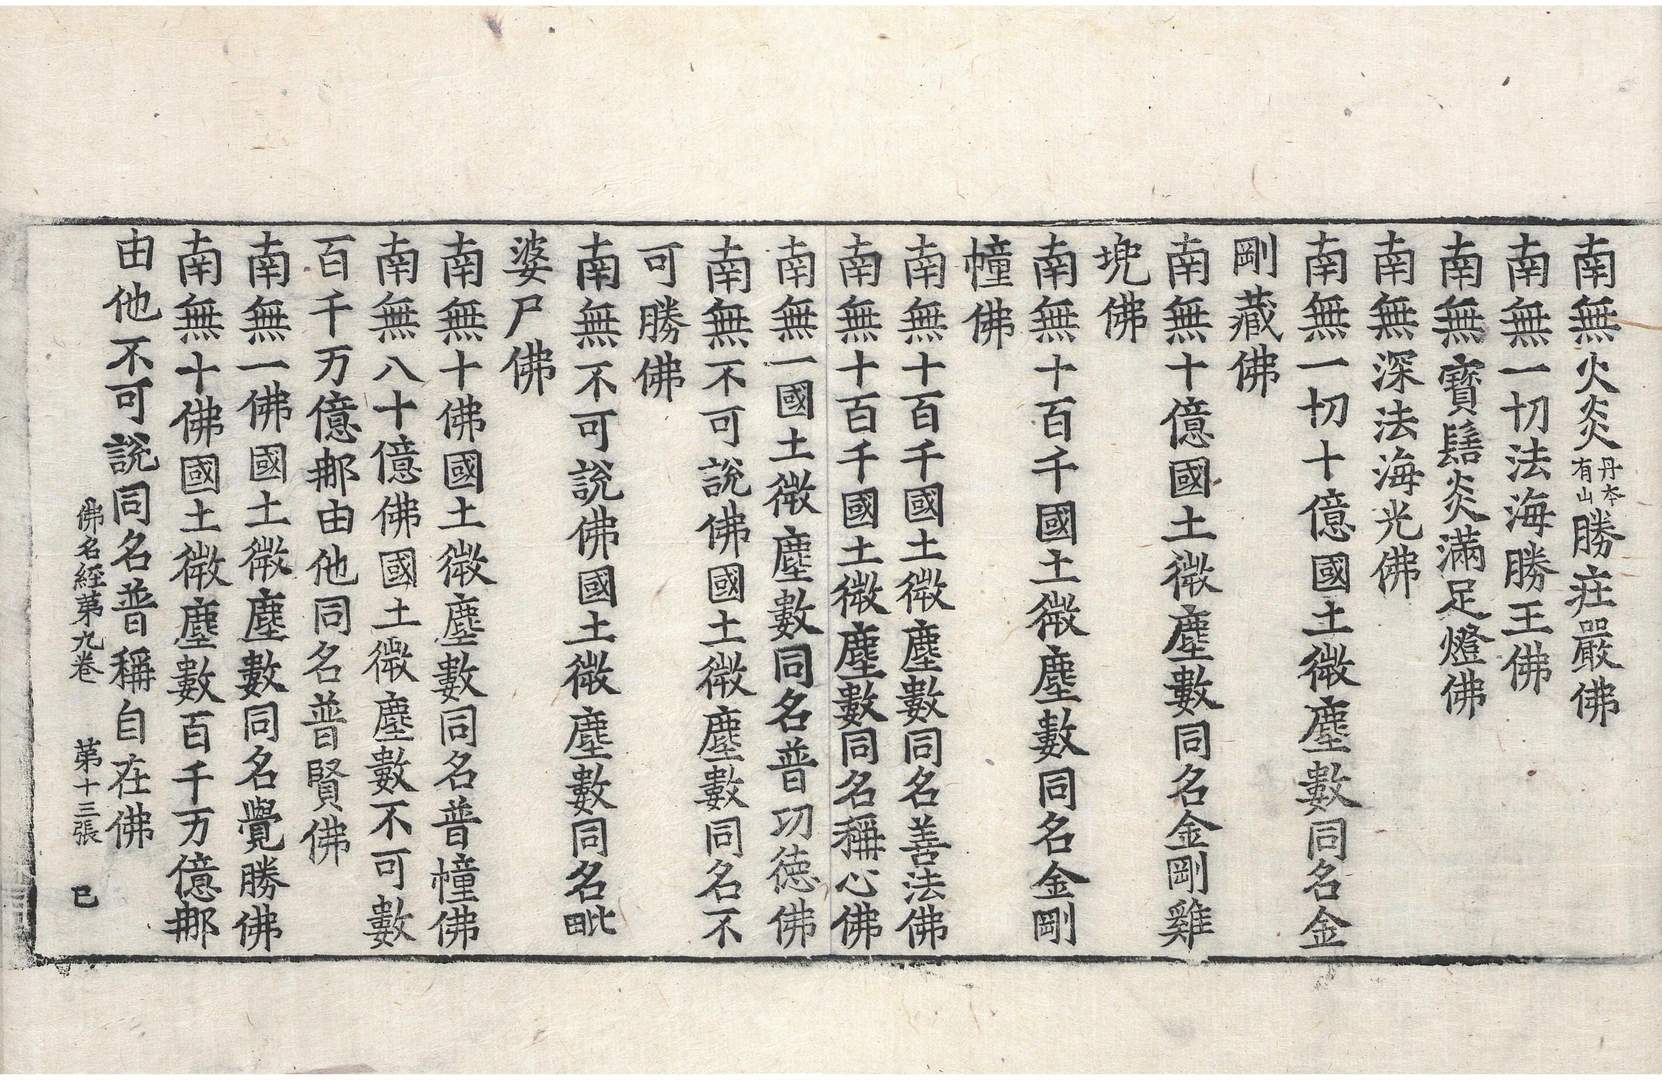 南無火炎丹本有山勝莊嚴佛
南無一切法海勝王佛
南無寶髻炎滿足燈佛
南無深法海光佛
南無一切十億國土微塵數同名金
剛藏佛
南無十億國土微塵數同名金剛雞
兜佛
南無十百千國土微塵數同名金剛
幢佛
南無十百千國土微塵數同名善法佛
南無十百千國土微塵數同名稱心佛
南無一國土微塵數同名普功德佛
南無不可說佛國土微塵數同名不
可勝佛
南無不可說佛國土微塵數同名毗
婆尸佛
南無十佛國土微塵數同名普幢佛
南無八十億佛國土微塵數不可數
百千万億那由他同名普賢佛
南無一佛國土微塵數同名覺勝佛
南無十佛國土微塵數百千万億那
由他不可說同名普稱自在佛
佛名經第九卷 第十三張 巳